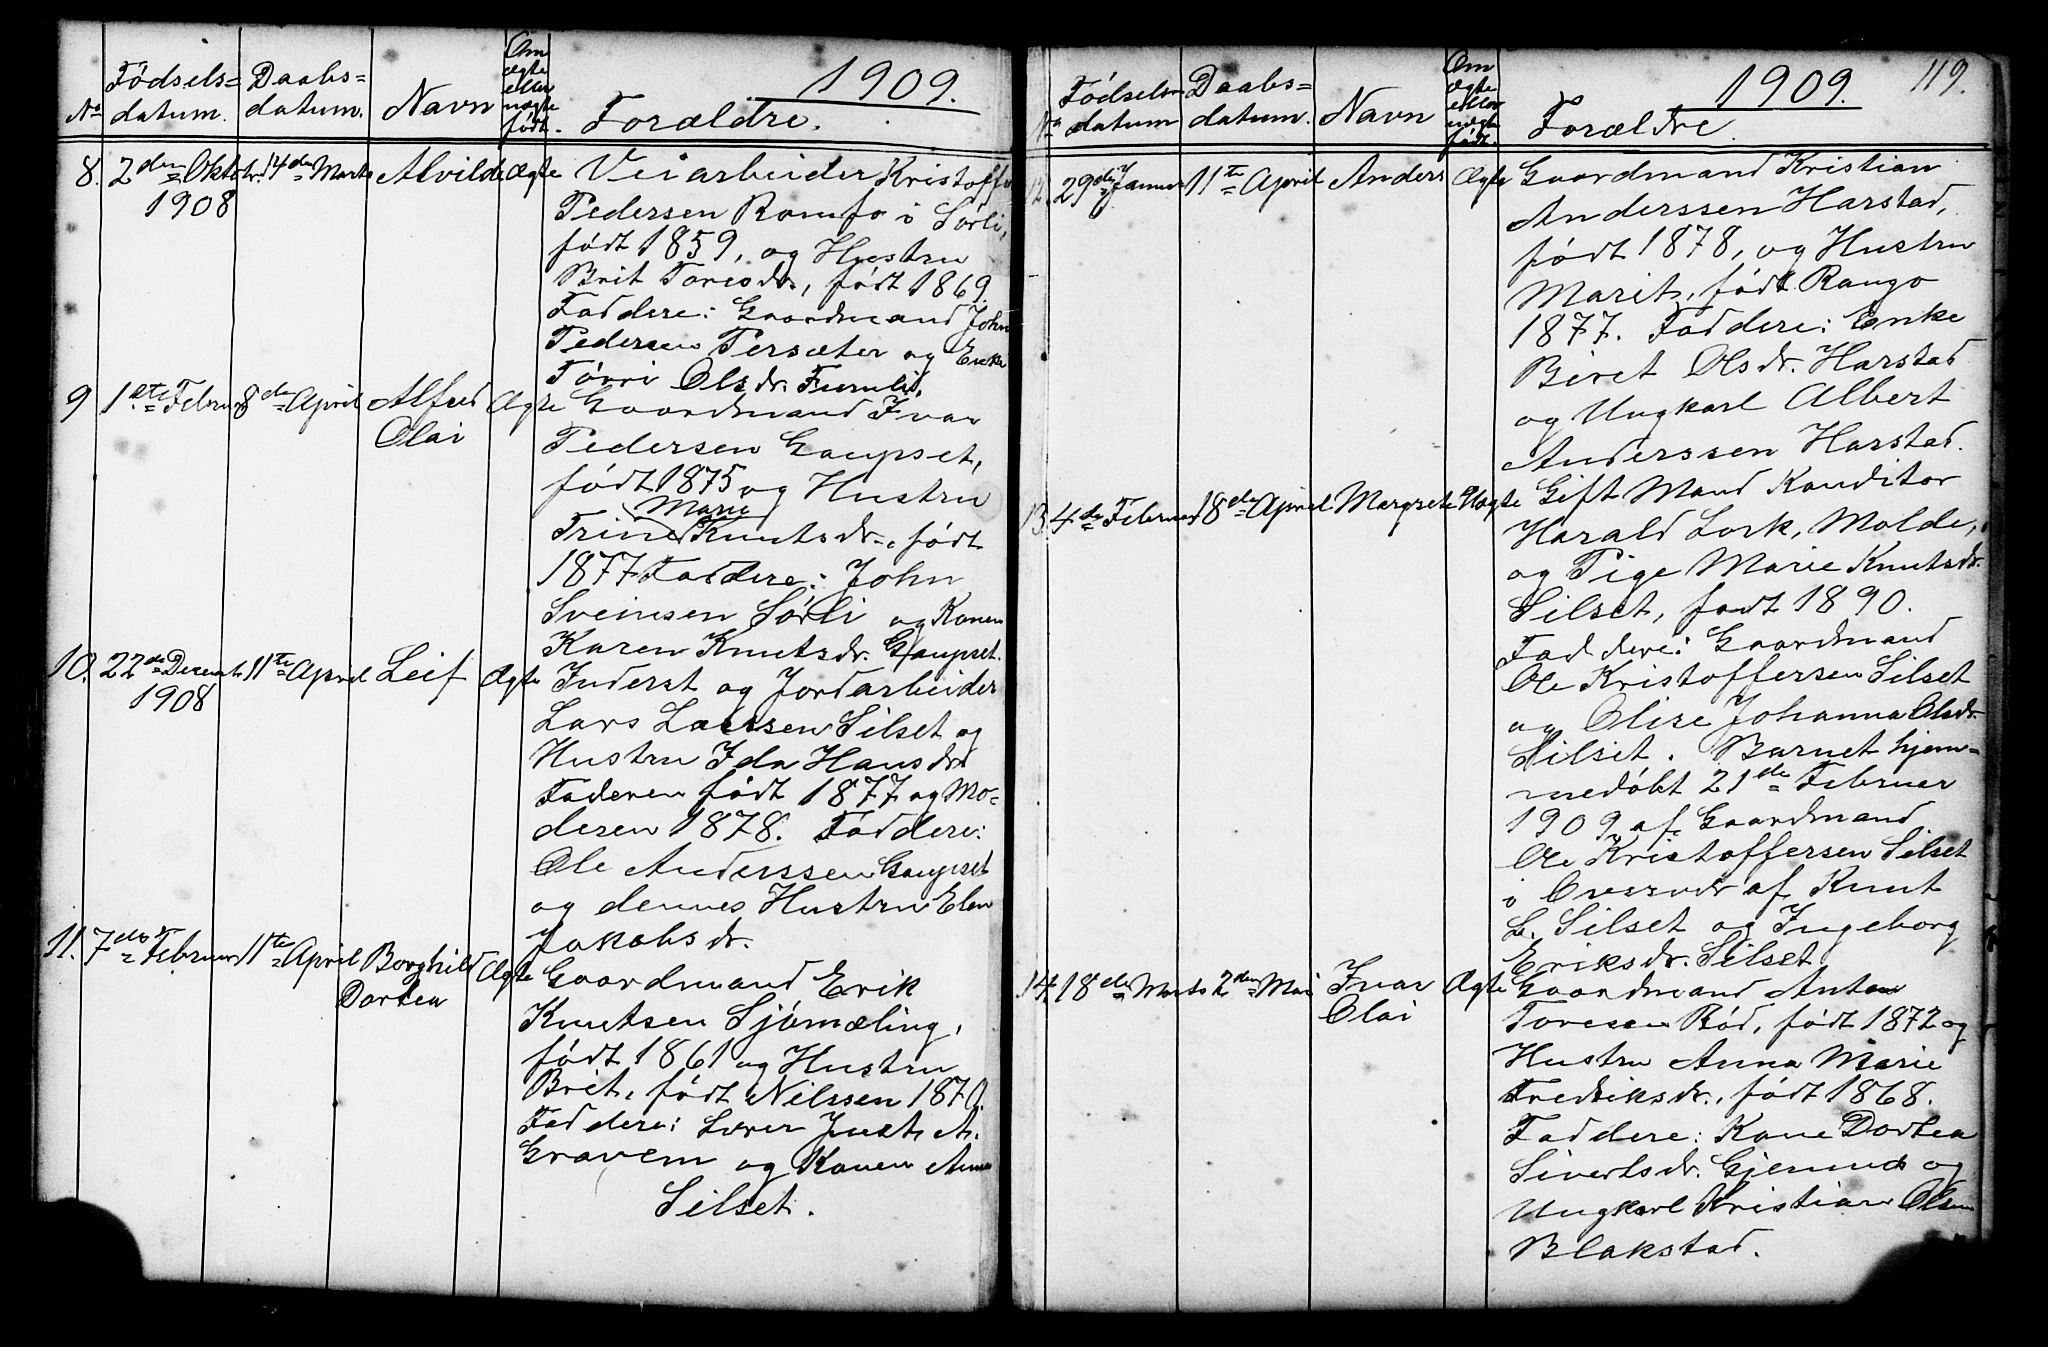 1909.
No Fødsels= datum. Daabs= datum. Navn Om ægte eller uægte født. Forældre.
8. 2den Oktbr. 1908 14de Marts Alvilde Ægte Veiarbeider Kristoffer
Pedersen Romfo i Sørli,
født 1859, og Hustru
Brit Toresdr., født 1869.
Faddere: Gaardmand John
Pedersen Tersæter og Enke
Olsdr. Furuli.
9 1ste Februar 18de April Alfred Olai Ægte Gaardmand Ivar
Pedersen Gaupset,
født 1875 og Hustru
Marie
Trine Knutsdr., født
1877 Faddere: John
Sveinsen Sørli og Konen
Karen Knutsdr. Gaupset.
10. 22de Decemb. 1908 11te April Leif Ægte Inderst og Jordarbeider
Lars Larssen Silset og
Hustru Ida Hansdr.
Faderen født 1877 og Mo=
deren 1878. Faddere:
Ole Anderssen Gaupset
og dennes Hustru Elen
Jakobsdr.
11. 7de Februar 11te April Borghild Dortea Ægte Gaardmand Erik
Knutsen Sjømæling,
født 1861 og Hustru
Brit, født Nilssen 1870.
Faddere: Lærer Just A.
Gravem og Konen Anne
Silset.
1909. 119.
No Fødsels= datum Daabs= datum. Navn Om ægte eller uægte født. Forældre
12. 29de Januar 11te April Anders Ægte Gaardmand Kristian
Anderssen Harstad,
født 1878, og Hustru
Marit, født Rango
1877. Faddere: Enke
Beret Olsdr. Harstad
og Ungkarl Albert
Anderssen Harstad.
13. 4de Februar 18de April Margrete Uægte Gift Mand Konditor
Harald Lork, Molde,
og Pige Marie Knutsdr.
Silset, født 1890.
Faddere: Gaardmand
Ole Kristoffersen Silset
og Olise Johanna Olsdr.
Silset. Barnet hjem=
medøbt 21de Februar
1909 af Gaardmand
Ole Kristoffersen Silset
i Overvær af Knut
L. Silset og Ingeborg
Eriksdr. Silset
14. 18de Marts 2den Mai Ivar Olai Ægte Gaardmand Anton
Toresen Rød, født 1872 og
Hustru Anna Marie
Fredriksdr., født 1868.
Faddere: Kone Dortea
Sivertsdr. Gjermundnes og
Ungkarl Kristian Olsen
Blakstad.